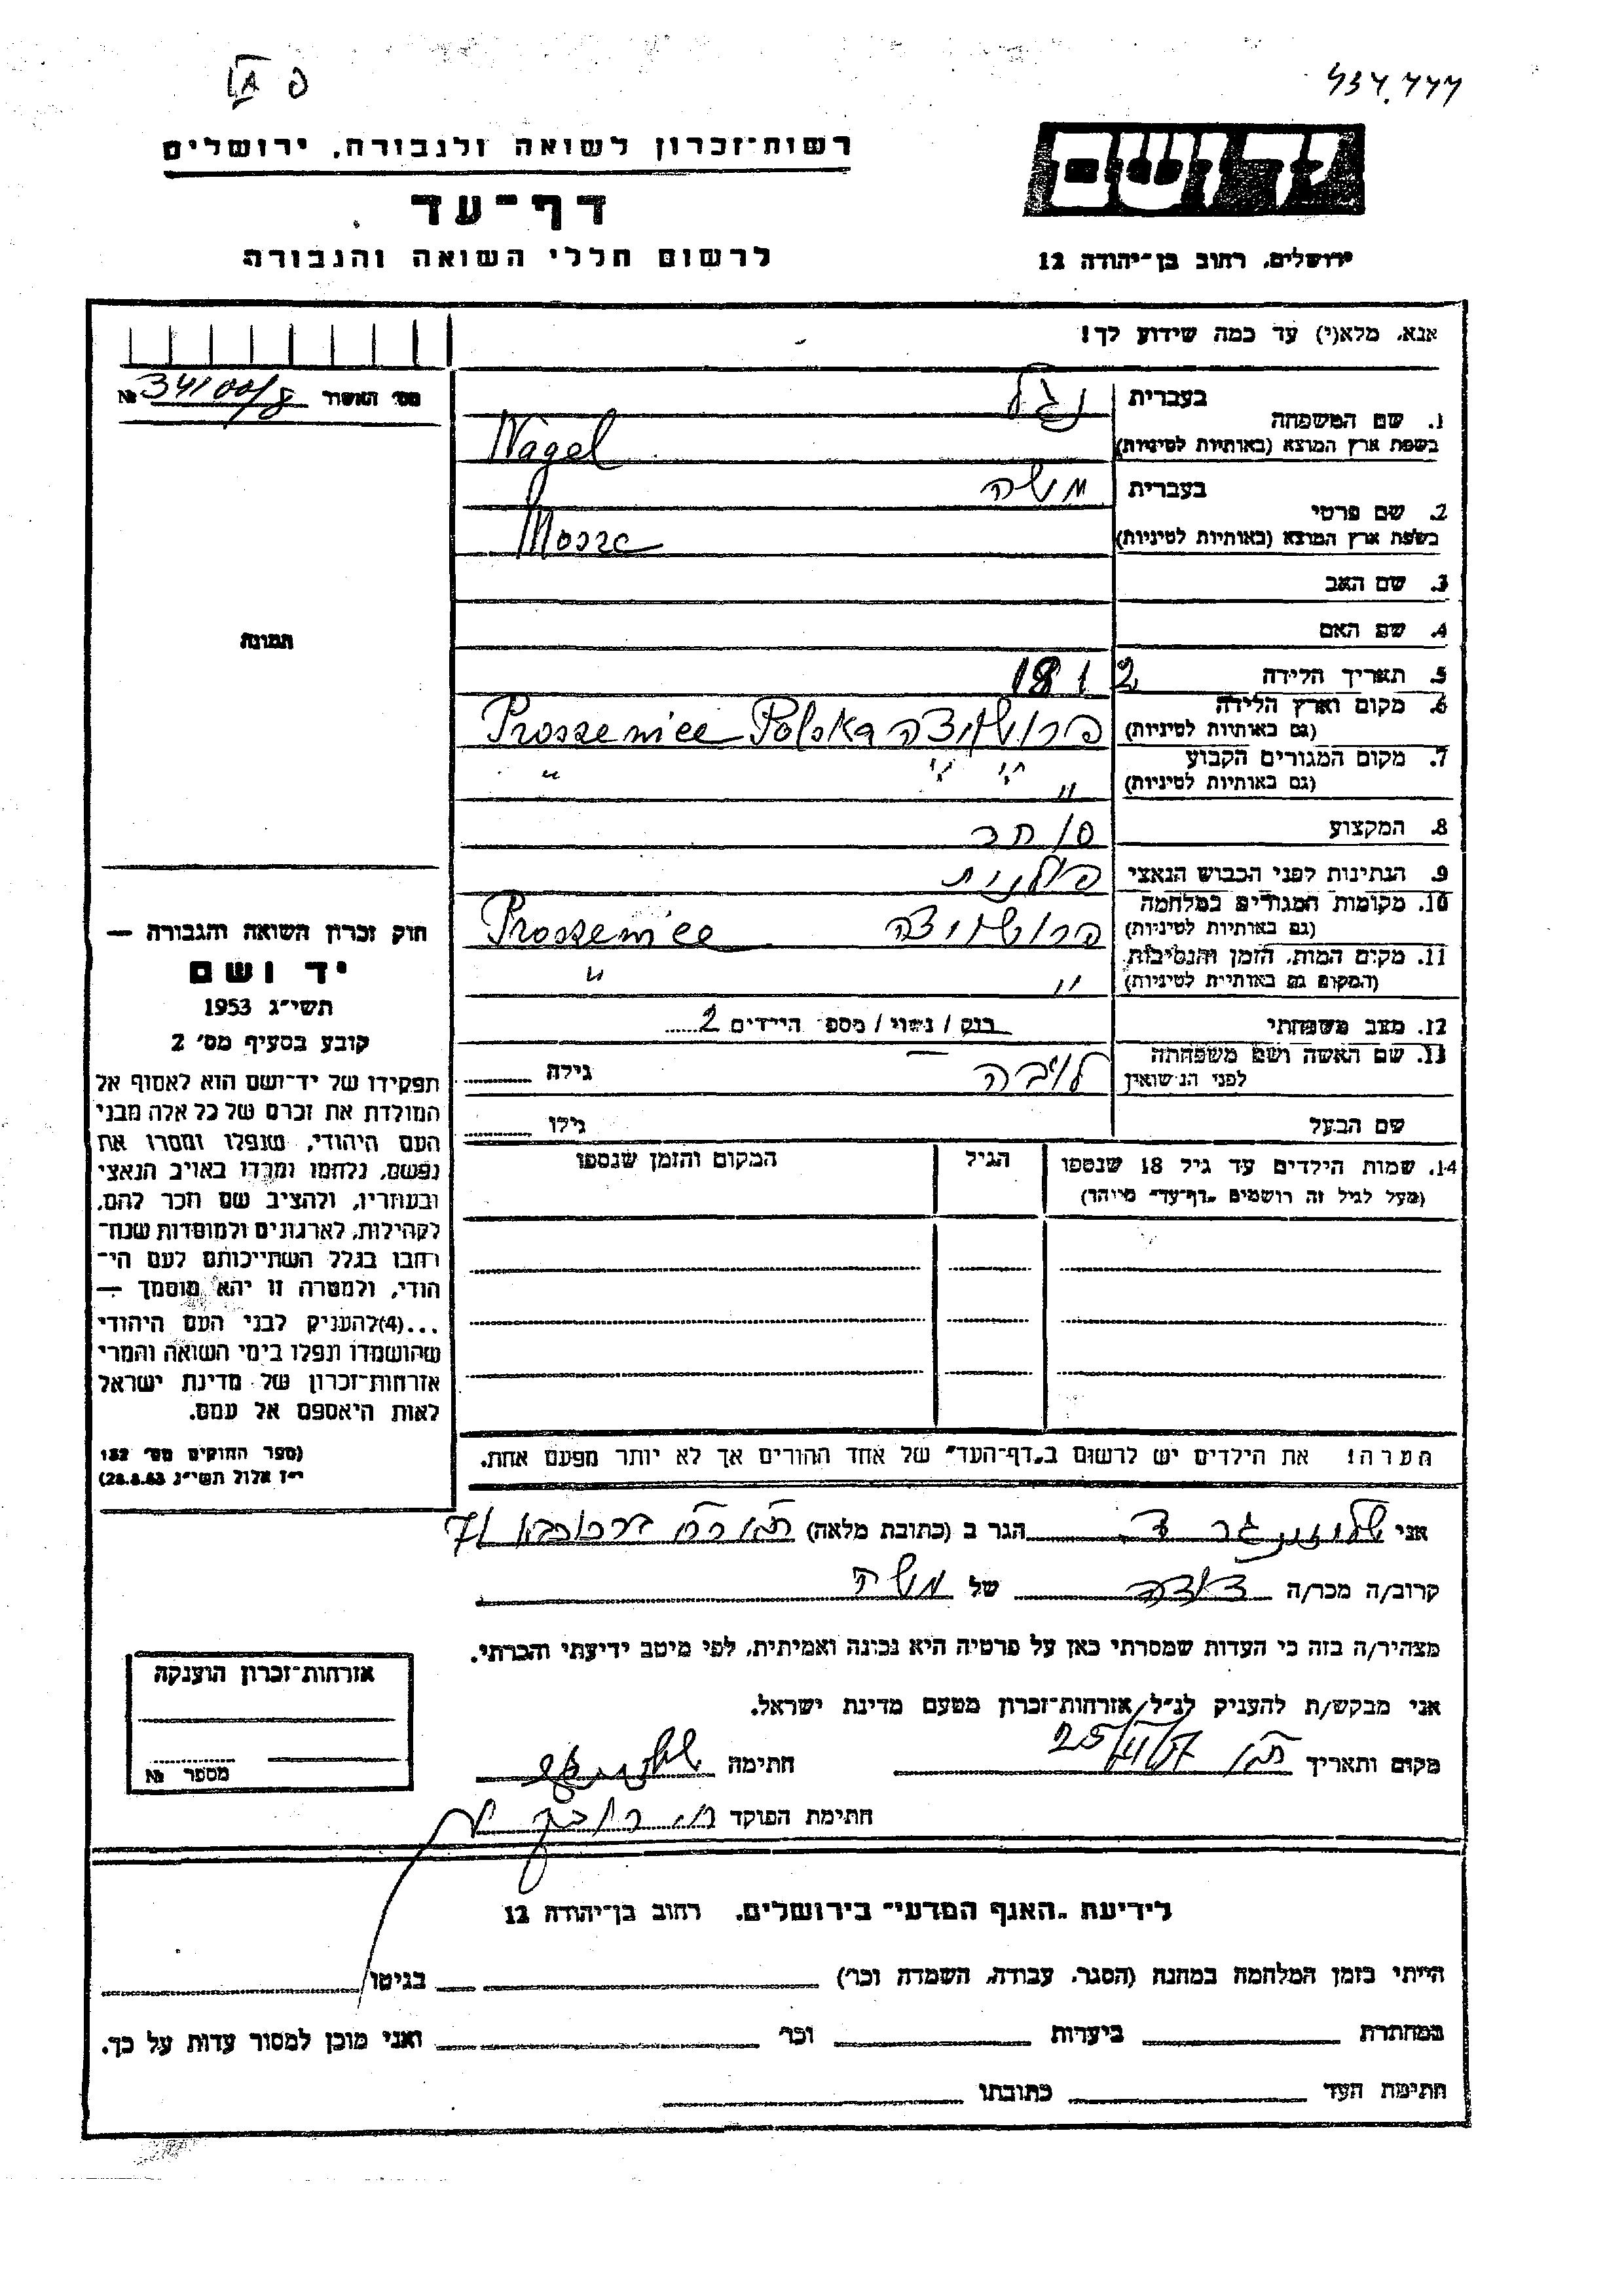 רשות־זכרון לשואה ולגבורה, ירושלים
דף־עד
לרשום חללי השואה והגבורה
יד ושם
ירושלים, רחוב בן־יהודה 12
אנא, מלא(י) עד כמה שידוע לך!
מס׳ האשור № 34100/8
1. שם המשפחה
בעברית נגל
בשפת ארץ המוצא (באותיות לטיניות) Nagel
2. שם פרטי
בעברית משה
בשפת ארץ המוצא (באותיות לטיניות)
3. שם האב
4. שם האם
5. תאריך הלידה
6. מקום וארץ הלידה
(גם באותיות לטיניות) פרושניצה Proszenice Polska
7. מקום המגורים הקבוע
(גם באותיות לטיניות) " " "
8. המקצוע סוחר
9. הנתינות לפני הכבוש הנאצי פולנית
10. מקומות המגורים במלחמה
(גם באותיות לטיניות) פרושניצה Proszenice
11. מקום המות, הזמן והנסיבות
(המקום גם באותיות לטיניות) " "
12. מצב משפחתי רווק / נשוי / מספר הילדים 2
13. שם האשה ושם משפחתה
לפני הנישואין ליבה גילה
שם הבעל גילו
14. שמות הילדים עד גיל 18 שנספו
(מעל לגיל זה רושמים „דף־עד” מיוחד)
הגיל
המקום והזמן שנספו
הערה: את הילדים יש לרשום ב„דף־העד” של אחד ההורים אך לא יותר מפעם אחת.
תמונה
חוק זכרון השואה והגבורה —
יד ושם
תשי״ג 1953
קובע בסעיף מס׳ 2
תפקידו של יד־ושם הוא לאסוף אל
המולדת את זכרם של כל אלה מבני
העם היהודי, שנפלו ומסרו את
נפשם, נלחמו ומרדו באויב הנאצי
ובעוזריו, ולהציב שם וזכר להם,
לקהילות, לארגונים ולמוסדות שנח־
רבו בגלל השתייכותם לעם הי־
הודי, ולמטרה זו יהא מוסמך —
...(4) להעניק לבני העם היהודי
שהושמדו ונפלו בימי השואה והמרי
אזרחות־זכרון של מדינת ישראל
לאות היאספם אל עמם.
(ספר החוקים מס׳ 132
י״ז אלול תשי״ג 28.8.53)
אני שלזינגר ד. הגר ב (כתובת מלאה)
קרוב/ה מכר/ה של משה
מצהיר/ה בזה כי העדות שמסרתי כאן על פרטיה היא נכונה ואמיתית, לפי מיטב ידיעתי והכרתי.
אני מבקש/ת להעניק לנ״ל/אזרחות־זכרון מטעם מדינת ישראל.
מקום ותאריך חתימה
חתימת הפוקד
אזרחות־זכרון הוענקה
מספר №
לידיעת „האגף המדעי” בירושלים, רחוב בן־יהודה 12
הייתי בזמן המלחמה במחנה (הסגר, עבודה, השמדה וכר׳) בגיטו
במחתרת ביערות וכר׳ ואני מוכן למסור עדות על כך.
חתימת העד כתובתו